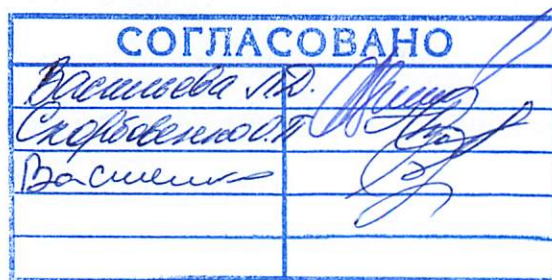 СОГЛАСОВАНО
Васильева Л.Д.
Скорбовенко О.П
Василенко